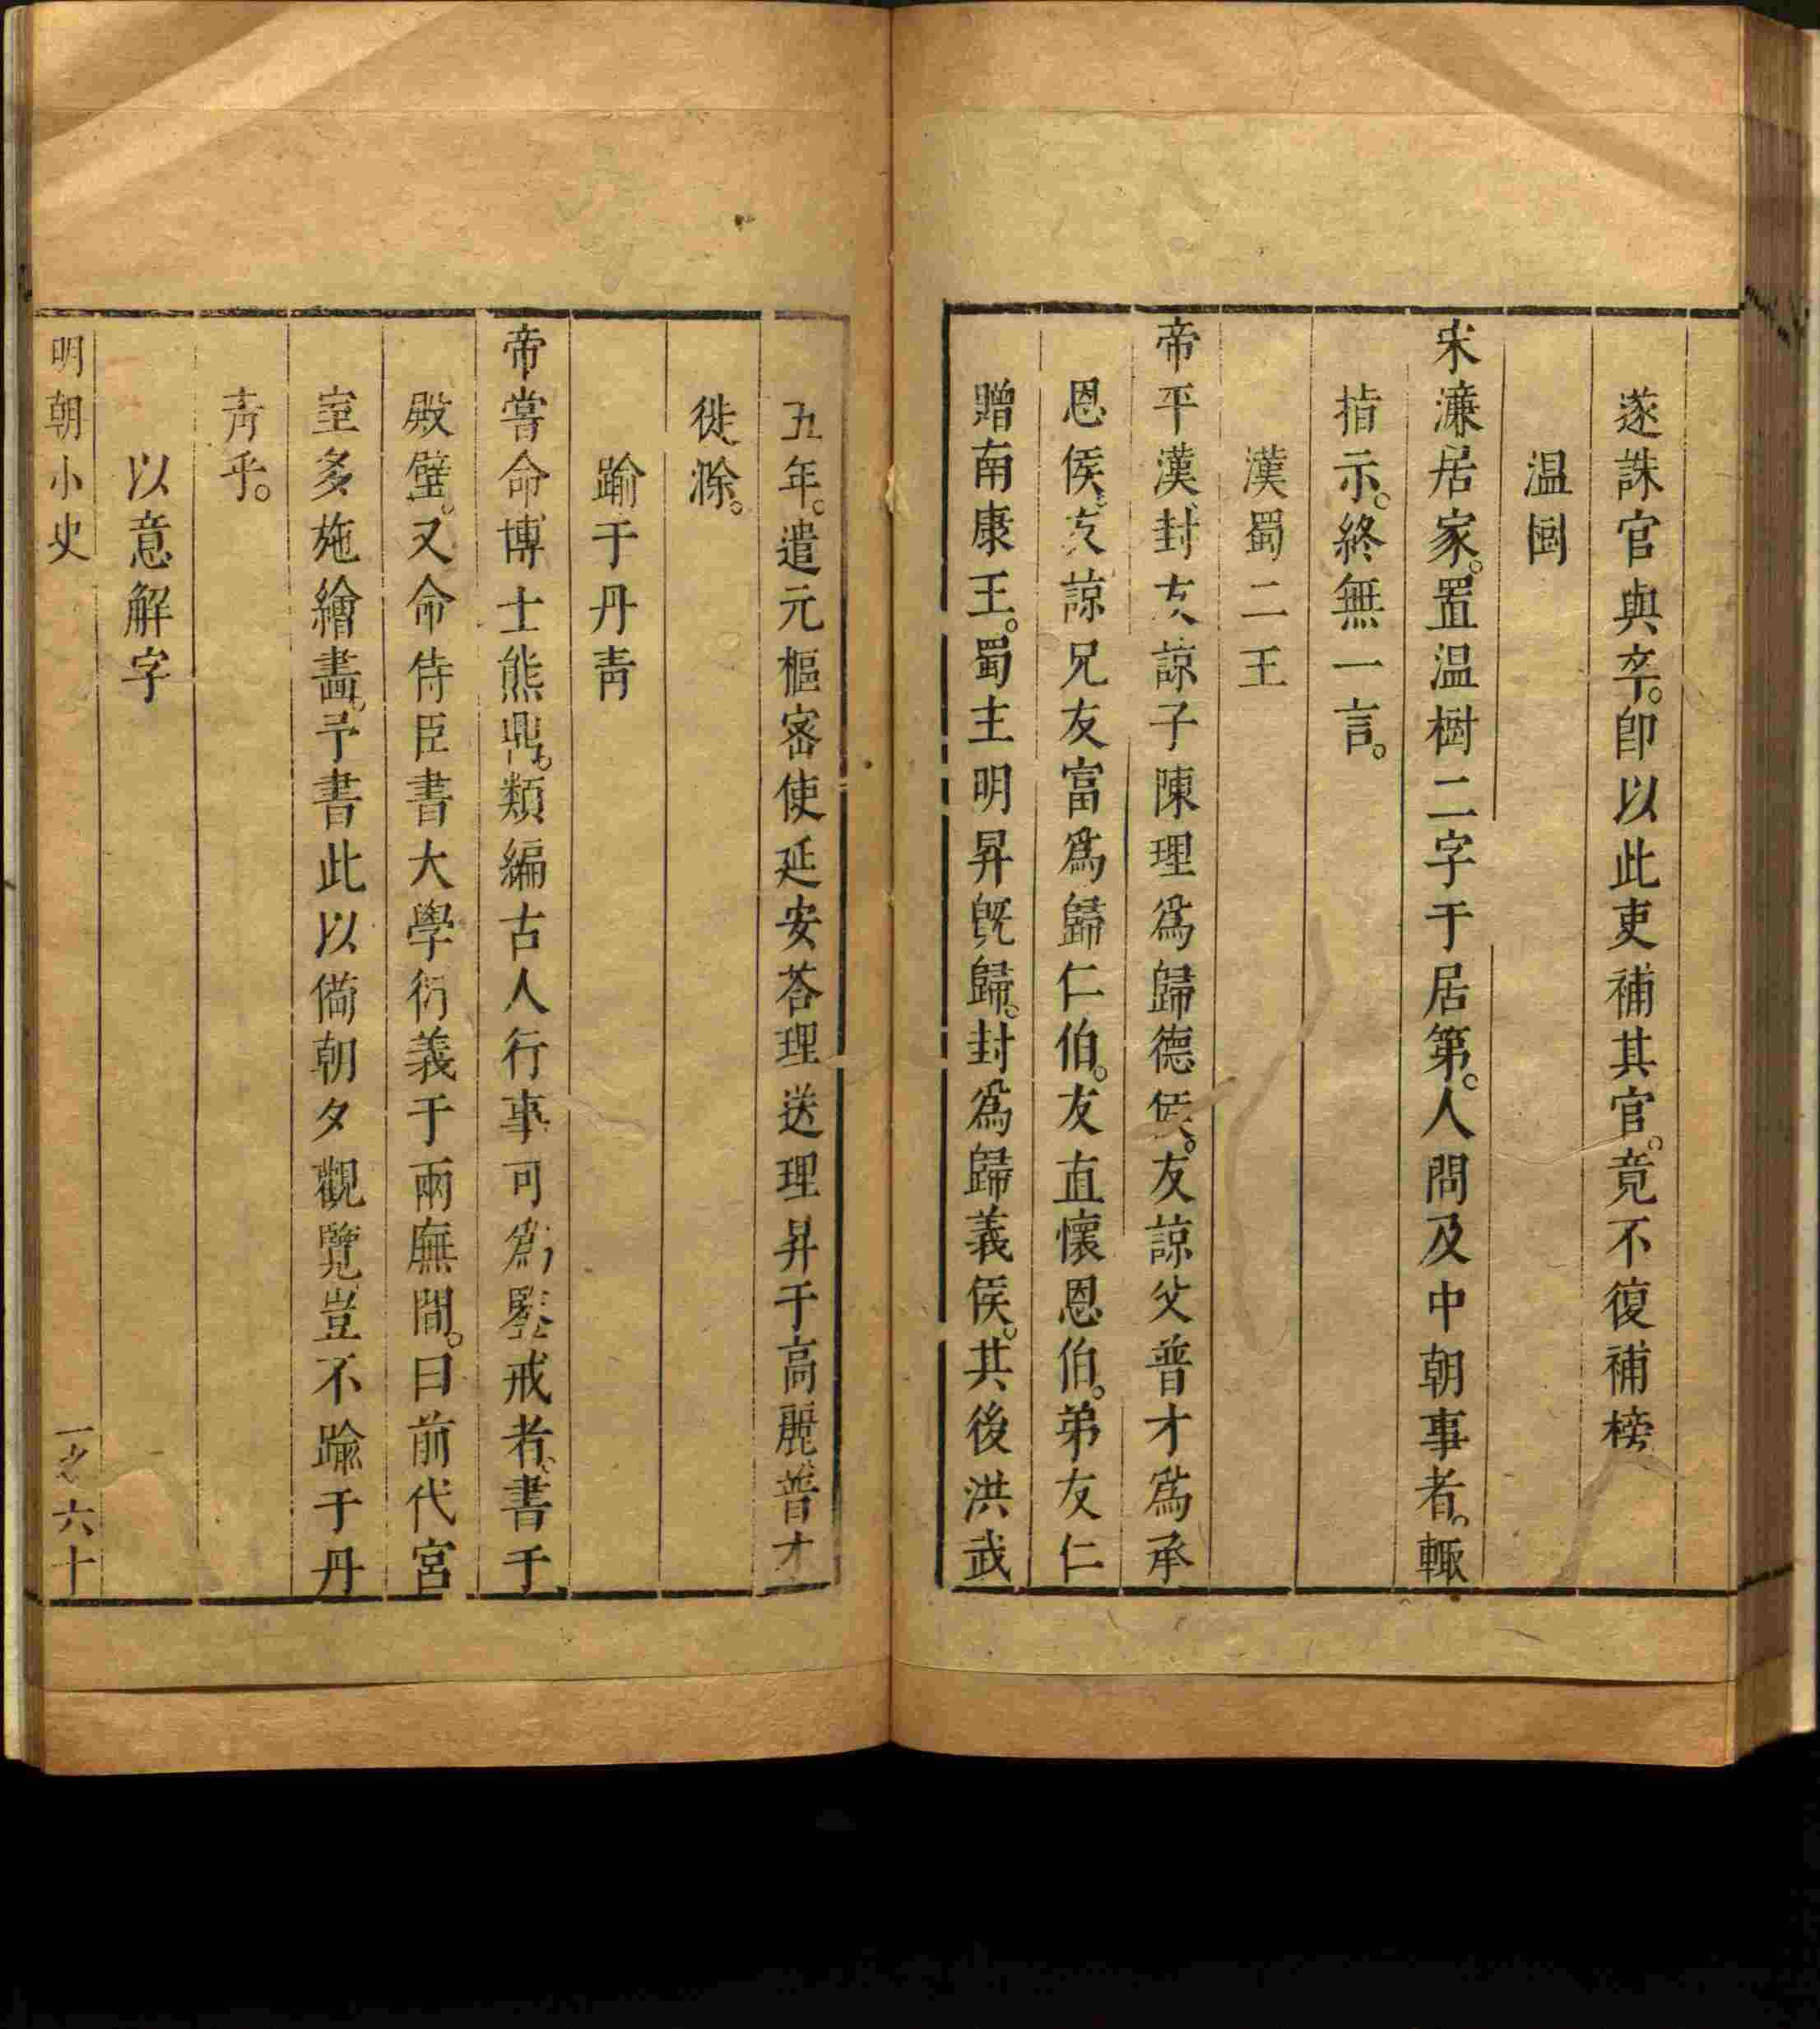 遂誅官與卒。卽以此吏補其官。竟不復補榜
温樹
宋濓居家。置温樹二字于居第。人問及中朝事者。輙
指示。終無一言。
漢蜀二王
帝平漢、封友諒子陳理爲歸德侯。友諒父普才爲承
恩侯。友諒兄友富爲歸仁伯。友直懷恩伯。弟友仁
贈南康王。蜀主明昇旣歸。封爲歸義侯。其後洪武
五年。遣元樞宻使延安荅理送理昇于高麗、普才
徙滁。
踰于丹靑
帝嘗命博士熊鼎。類編古人行事可爲鑒戒者、書于
殿壁。又命侍臣書大學衍義于兩廡間。曰前代宮
室多施繪畵、予書此以備朝夕觀覽豈不踰于丹
靑乎。
以意解字
明朝小史 一之 六十